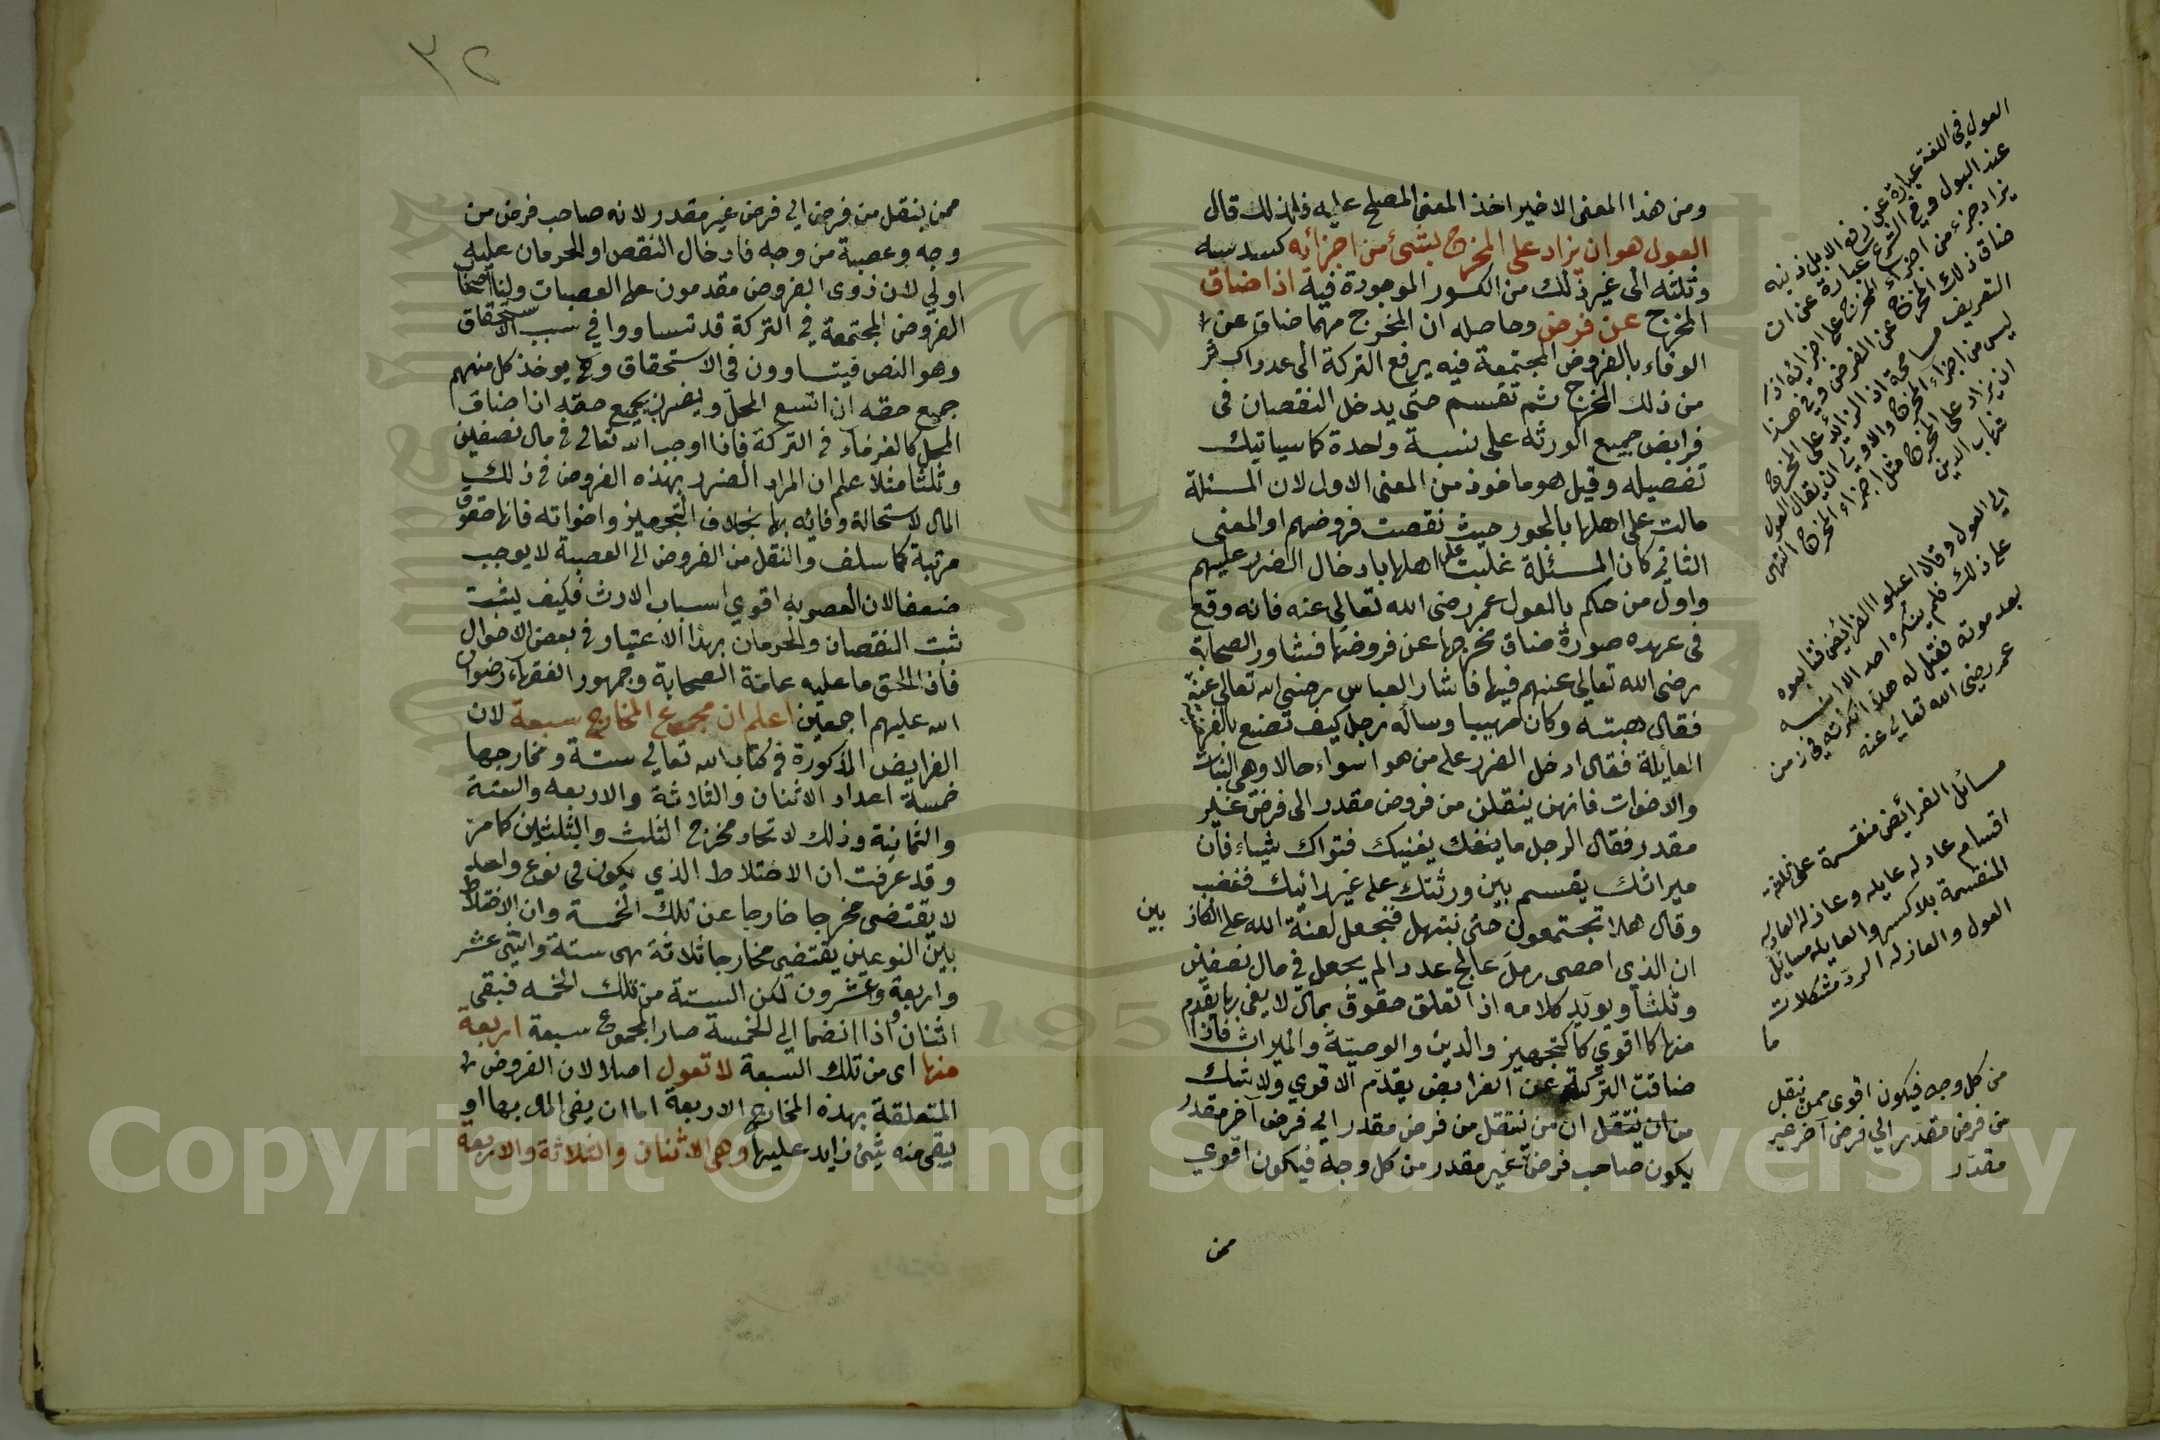 ومن هذا المعنى الاخير اخذ المعنى المصطلح عليه فلذلك قال
العول هو ان يزاد على المخرج بشئ من اجزائه كسدسه
وثلثه الى غير ذلك من الكسور الموجودة فيه اذا ضاق
المخرج عن فرض وحاصله ان المخرج مهما ضاق عن
الوفاء بالفروض المجتمعة فيه يرفع التركة الى عدد اكثر
من ذلك المخرج ثم تقسم حتى يدخل النقصان فى
فرايض جميع الورثه على نسبة واحدة كما سياتيك
تفصيله وقيل هو ماخوذ من المعنى الاول لان المسئلة
مالت على اهلها بالجور حيث نقصت فروضهم او المعنى
الثانى كان المسئلة غلبت على اهلها بادخال الضرر عليهم
واول من حكم بالعول عمر رضى الله تعالى عنه فانه وقع
فى عهده صورة ضاق مخرجها عن فروضها فشاور الصحابة
رضى الله تعالى عنهم فيها فاشار العباس رضى الله تعالى عنه
فقال هبته وكان مهيبا وساله رجل كيف تصنع بالفريضة
العايلة فقال ادخل الضرر على من هو اسواء حالا وهى البنات
والاخوات فانهن ينقلن من فروض مقدر الى فرض غير
مقدر فقال الرجل ما ينفك يغنيك فتواك شياء فان
ميراثك يقسم بين ورثتك على غير رائيك فغضب
وقال هلا تجتمعون حتى نبتهل فنجعل لعنة الله على الكاذبين
ان الذى احصى رمل عالج عددا لم يجعل فى مال نصفين
وثلثا ويويد كلامه اذا تعلق حقوق بمال لا يفى بها يقدم
منها كا اقوى كالتجهيز والدين والوصية والميراث فاذا
ضاقت التركة عن الفرايض يقدم الاقوى ولا شك
من ان ينتقل ان من ينتقل من فرض مقدر الى فرض آخر مقدر
يكون صاحب فرض غير مقدر من كل وجه فيكون اقوى
ممن
العول فى اللغة عبارة عن رفع الابل ذنبه
عند البول وفى الشرع عبارة عن ان
يزاد جزء من اجزاء المخرج على اجزائه اذا
ضاق ذلك المخرج عن الفرض وفى هذا
التعريف مسامحة اذ الزائد على المخرج
ليس من اجزاء المخرج والاولى ان يقال العول
ان يزاد على المخرج مثل اجزاء المخرج انتهى
شهاب الدين
الى العول وقال اعيلوا الفرائض فتابعوه
على ذلك فلم ينكره احد الا ابنه
بعد موته فقيل له هلا انكرته فى زمن
عمر رضى الله تعالى عنه
مسائل الفرائض منقسمة على ثلثة
اقسام عادله عايله وعاذله العادله
المنقسمة بلا كسر والعايله مسايل
العول والعاذله الرد مشكلات
ما
من كل وجه فيكون اقوى ممن ينقل
من فرض مقدر الى فرض آخر غير
مقدر
٣٢
ممن ينقل من فرض الى فرض غير مقدر لانه صاحب فرض من
وجه وعصبة من وجه فادخال النقص او الحرمان عليه
اولى لان ذوى الفروض مقدمون على العصبات ولنا اصحاب
الفروض المجتمعة فى التركة قد تساووا فى سبب الاستحقاق
وهو النص فيتساوون فى الاستحقاق وح يوخذ كل منهم
جميع حقه ان اتسع المحل ويضرب بجميع حقه ان ضاق
المحل كالغرماء فى التركة فاذا اوجب الله تعالى فى مال نصفين
وثلثا مثلا علم ان المراد الضرب بهذه الفروض فى ذلك
المال لاستحالة وفائه بها بخلاف التجهيز واخواته فانها حقوق
مرتبة كما سلف والنقل من الفروض الى العصبة لا يوجب
ضعفا لان العصوبه اقوى اسباب الارث فكيف يثبت
ثبت النقصان والحرمان بهذا الاعتبار فى بعض الاحوال
فاذا الحق ما عليه عامة الصحابة وجمهور الفقهاء رضوان
الله عليهم اجمعين اعلم ان مجموع المخارج سبعة لان
الفرايض المذكورة فى كتاب الله تعالى ستة ومخارجها
خمسة اعداد الاثنان والثلاثة والاربعه والستة
والثمانية وذلك لاتحاد مخرج الثلث والثلثين كما مر
وقد عرفت ان الاختلاط الذى يكون فى نوع واحد
لا يقتضى مخرجا خارجا عن تلك الخمسة وان الاختلاط
بين النوعين يقتضى مخارجا ثلاثة هى ستة واثنى عشر
واربعة وعشرون لكن الستة من تلك الخمسه فبقى
اثنان واذا انضما الى الخمسة صار المجموع سبعة اربعة
منها اى من تلك السبعة لا تعول اصلا لان الفروض
المتعلقة بهذه المخارج الاربعة اما ان يفى المال بها او
يبقى منه شئ زايد عليها وهى الاثنان والثلاثة والاربعة
Copyright © King Saud University
195